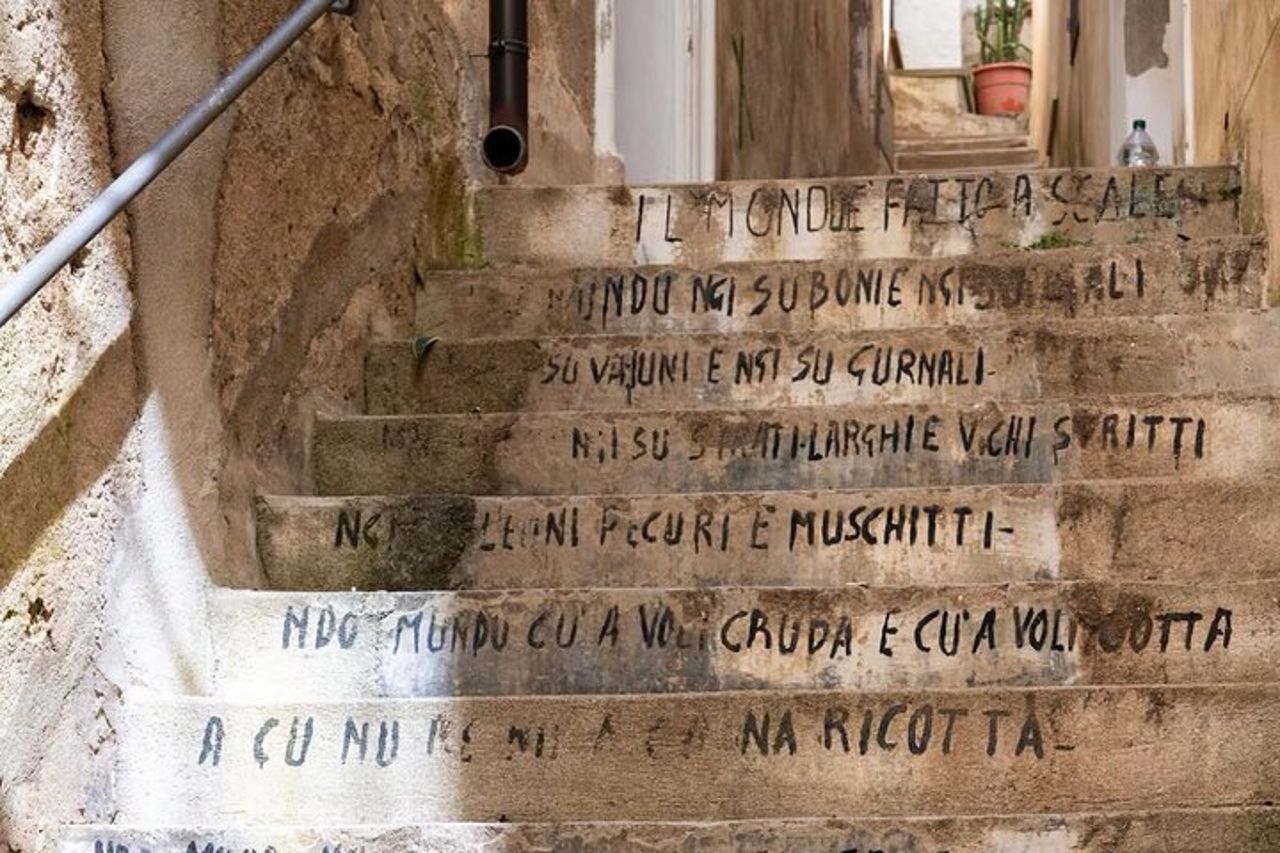 IL MONDO E' FATTO A SCALE
MUNDU NGI SU BONI E NGI SU
SU VAJUNI E NGI SU GURNALI-
NGI SU STRATI LARGHI E VICHI STRITTI
NGI LEUNI PECURI E MUSCHITTI-
NDO MUNDU CU' A VOLI CRUDA E CU' A VOLI COTTA
A CU NU NA RICOTTA-